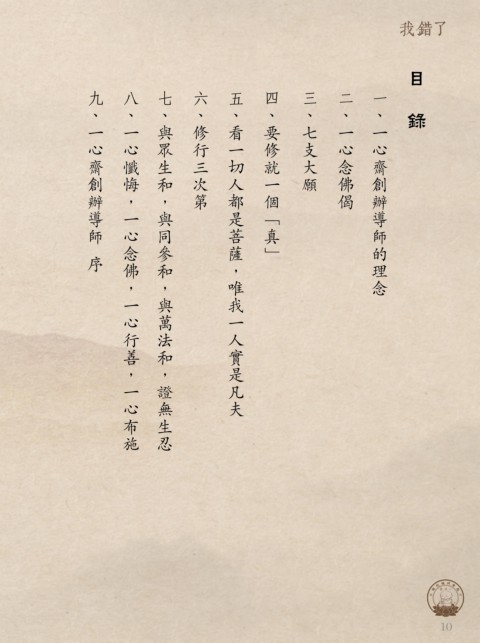 我錯了
目錄
一、一心齋創辦導師的理念
二、一心念佛偈
三、七支大願
四、要修就一個「真」
五、看一切人都是菩薩，唯我一人實是凡夫
六、修行三次第
七、與眾生和，與同參和，與萬法和，證無生忍
八、一心懺悔，一心念佛，一心行善，一心布施
九、一心齋創辦導師 序
10